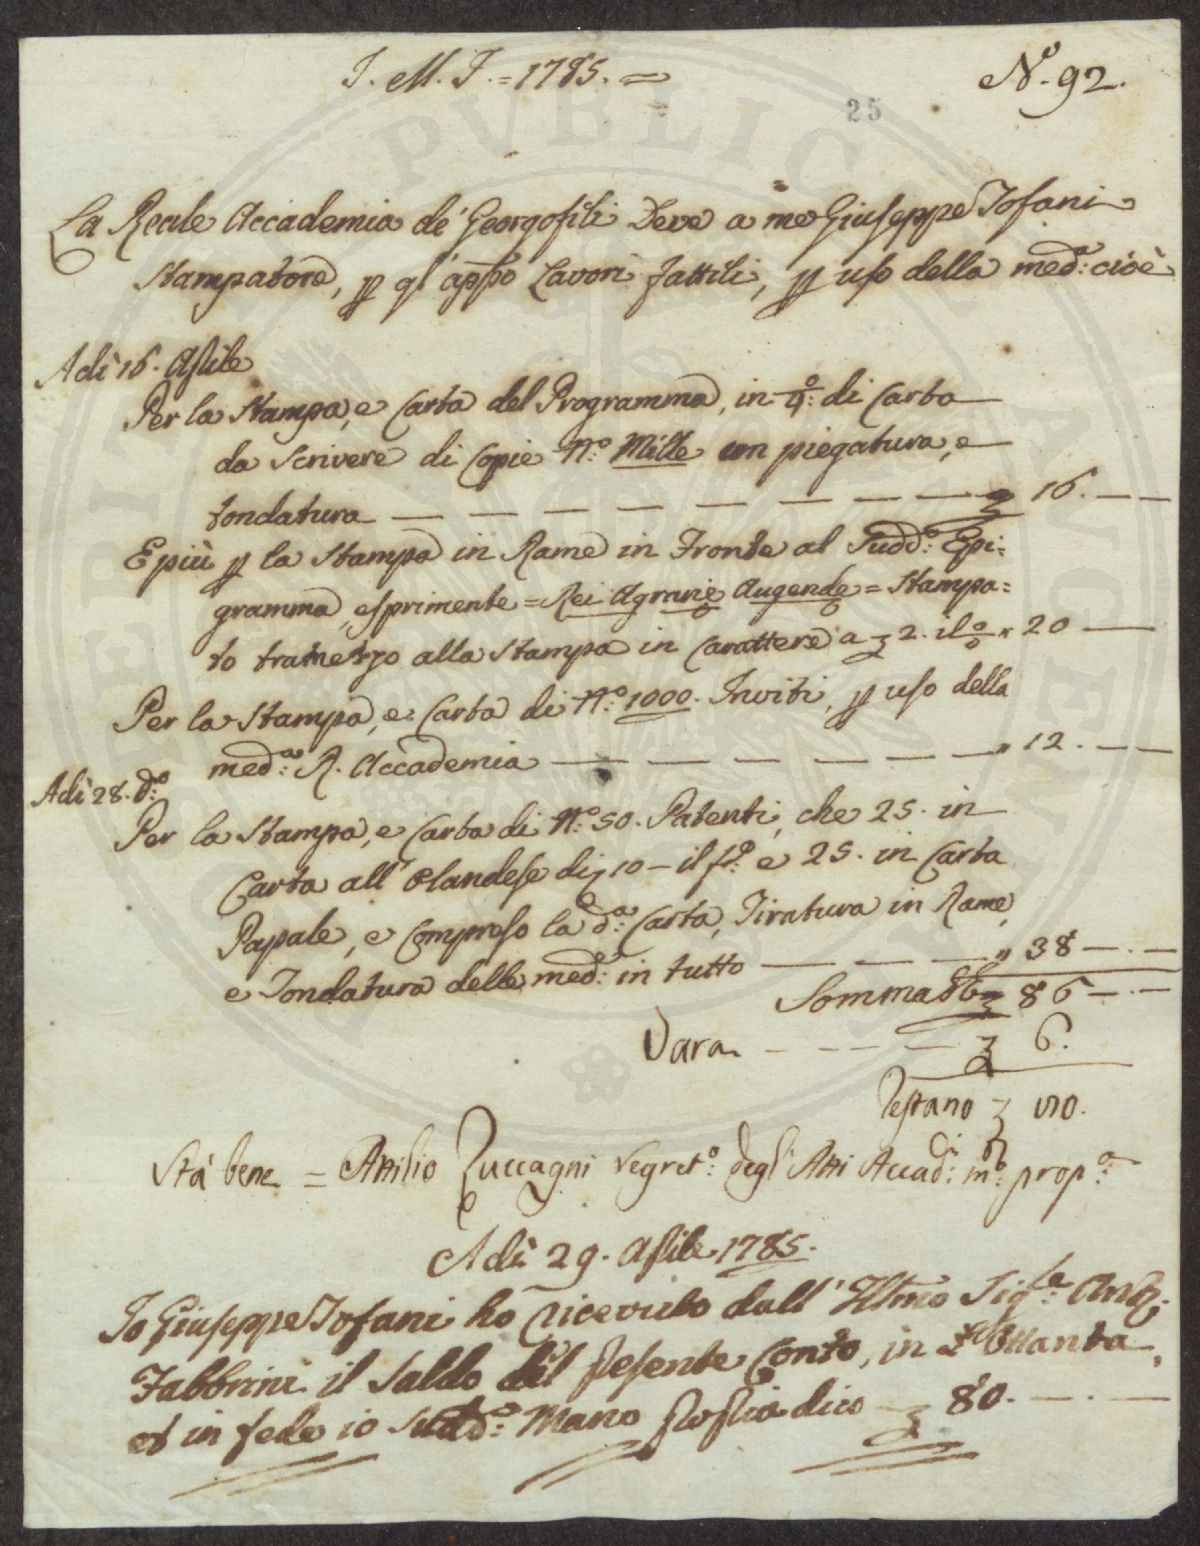 J. M. J. = 1785. =
N.o 92.
25
La Reale Accademia de' Georgofili Deve a me Giuseppe Tofani
Stampatore, p gl' appo Lavori fattili, p uso della med.a cioè
Adì 16. Aprile
Per la Stampa, e Carta del Programma, in 4.o di Carta
da Scrivere di Copie N.o Mille con piegatura, e
tondatura — — — — — — — £ 16. — —
E più p la Stampa in Rame in Fronte al Sudd.o Epi=
gramma, esprimente = Rei Agrarie Augende = Stampa=
to tramezzo alla Stampa in Carattere a £ 2. il % " 20 —
Per la Stampa, e Carta di N.o 1000. Inviti, p uso della
med.a R. Accademia — — — — — — " 12. — —
Adì 28. d.o
Per la Stampa, e Carta di N.o 50. Patenti, che 25. in
Carta all' Olandese di £ 10 — il f.o e 25. in Carta
Papale, e Compreso la d.a Carta, Tiratura in Rame,
e Tondatura delle med.e in tutto — — — " 38 — . —
Somma £ 86 — . —
Tara. — — — — £ 6.
Restano £ 80.
Stà bene = Attilio Zuccagni Segret.o degl' Atti Accad.i m.o prop.a
Adì 29. Aprile 1785.
Io Giuseppe Tofani ho ricevuto dall' Illmo Sig.re
Fabbrini il Saldo del presente Conto, in £ Ottanta,
et in fede io Sudd.o Mano propria dico £ 80. — . —
PUBLIC